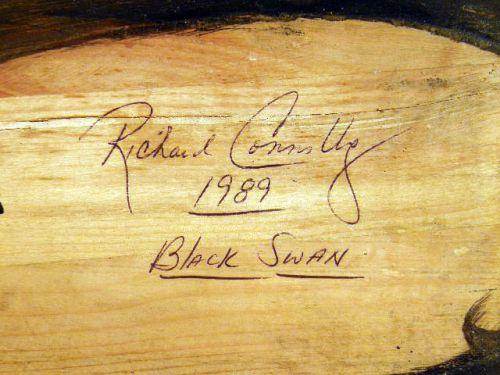 Richard Connolly
1989
Black Swan